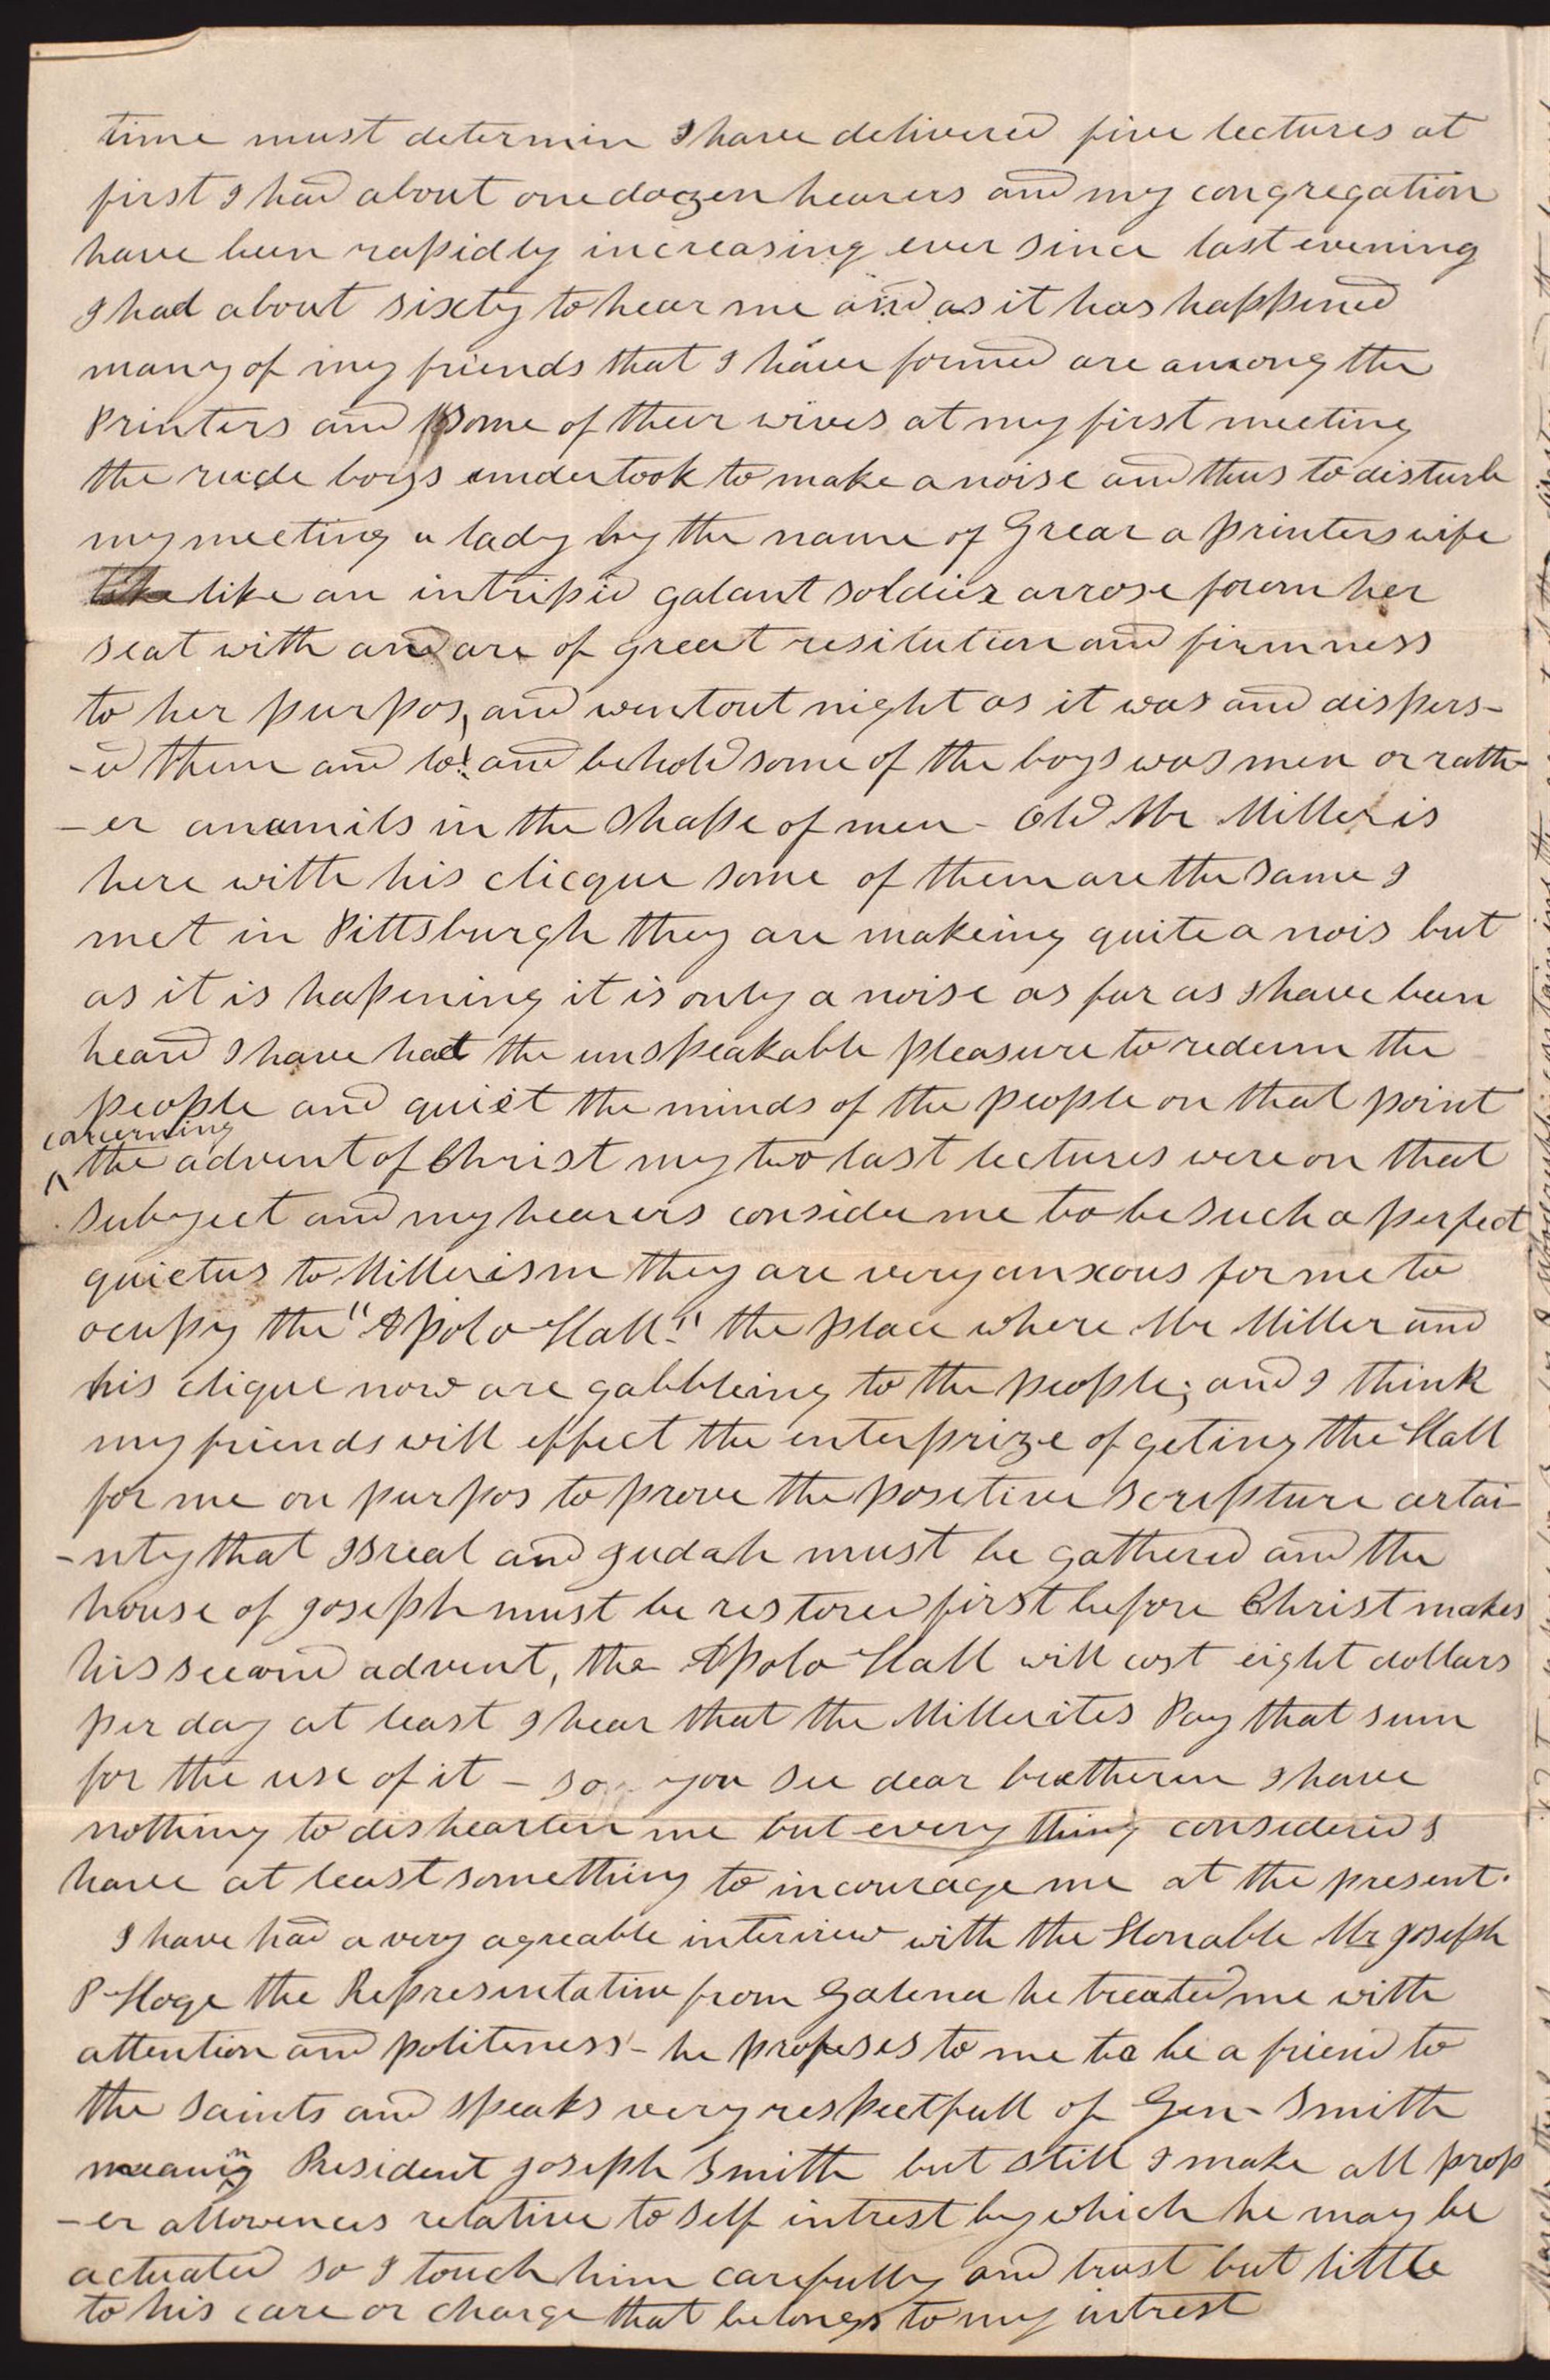 time must determin I have delivered five lectures at
first I had about one dozen hearers and my congregation
have been rapidly increasing ever since last evening
I had about sixety to hear me and as it has happened
many of my friends that I have formed are among the
Printers and some of their wives at my first meeting
the rude boys undertook to make a noise and thus to disturb
my meeting a lady by the name of Grear a printers wife
like an intripid galant soldier arrose from her
seat with and are of great resilution and firmness
to her purpos, and went out night as it was and dispers-
-ed them and lo! and behold some of the boys was men or rath-
-er anamils in the shape of men - Old Mr Miller is
here with his clicque some of them are the same I
met in Pittsburgh they are makeing quite a nois but
as it is hapening it is only a noise as far as I have been
heard I have had the unspeakable pleasure to redeem the
people and quiet the minds of the people on that point
concerning
^ the advent of Christ my two last lectures were on that
subject and my hearers consider me to be such a perfect
quietus to Millerism they are very anxous for me to
ocupy the "Apolo Hall" the place where Mr Miller and
his clique now are gabbleing to the people; and I think
my friends will effect the enterprize of geting the Hall
for me on purpos to prove the positive scripture certai-
-nty that Isreal and Judah must be gathered and the
house of Joseph must be restored first before Christ makes
his second advent, the Apolo Hall will cost eight dollars
per day at least I hear that the Millerites Pay that sum
for the use of it - so you see dear bretheren I have
nothing to dishearten me but every thing considered I
have at least something to incourage me at the present.
I have had a very agreable interview with the Honable Mr Joseph
P Hoge the Representative from Galena he treated me with
attention and politeness - he profeses to me to be a friend to
the saints and speaks very respectfull of Gen- Smith
meaning President Joseph Smith but still I make all prop
-er allowences relative to self intrest by which he may be
actuated so I touch him carefully and trust but little
to his care or charge that belongs to my intrest